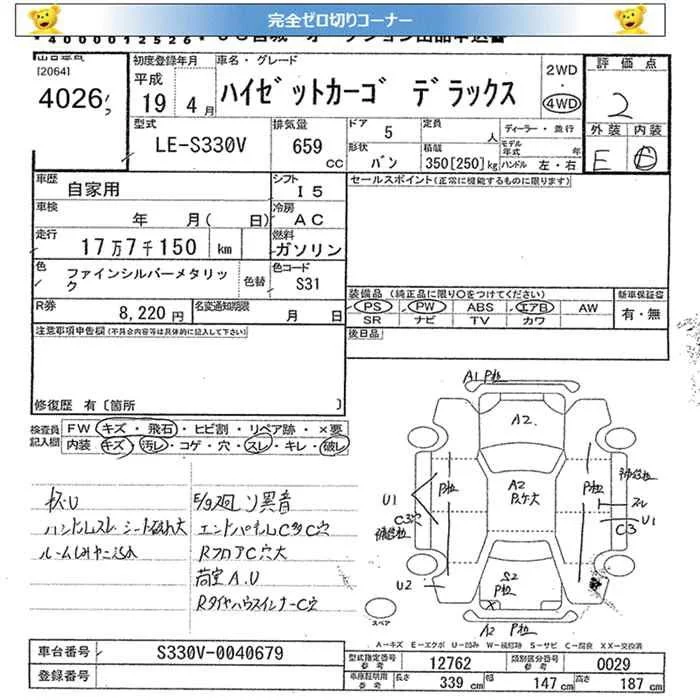 完全ゼロ切りコーナー
*4000012526*
[2064]
4026
初度登録年月
平成
19 4月
車名・グレード
ハイゼットカーゴ デラックス
2WD
・
4WD
評価点
2
外装 内装
E
型式
LE-S330V
排気量
659
CC
ドア
5
形状
バン
定員
人
積載
350[250]kg
ディーラー・並行
モデル年式 年
ハンドル 左・右
車歴
自家用
シフト
I5
車検
年 月( 日)
冷房
AC
走行
17万7千150 km
燃料
ガソリン
色
ファインシルバーメタリック
色替
色コード
S31
R券
8,220円
名変通知期限
月 日
セールスポイント(正常に機能するものに限ります)
装備品(純正品に限り〇をつけてください)
PS PW ABS エアB AW
SR ナビ TV カワ
新車保証書
有・無
後日品
注意事項申告欄(不具合内容等は具体的に記入して下さい)
修復歴 有〔箇所 〕
検査員記入欄
FW キズ・飛石・ヒビ割・リペア跡・×要
内装 キズ・汚レ・コゲ・穴・スレ・キレ・破レ
ハンドルスレ シート破れ大
E/g廻り異音
エンドパネルC多C穴
RフロアC穴大
荷室A.U
RタイヤハウスインナーC穴
A1 P粒
A2
A2
P粒
P粒
U1
C3穴
U2
スレ
U1
C3
S2
P粒
X
A2 P粒
スペア
A=キズ E=エクボ U=凹み W=補修跡 S=サビ C=腐食 XX=交換済
車台番号
S330V-0040679
登録番号
型式指定番号
参考
12762
類別区分番号
参考
0029
車庫証明用
参考
長さ
339 cm
幅
147 cm
高さ
187 cm